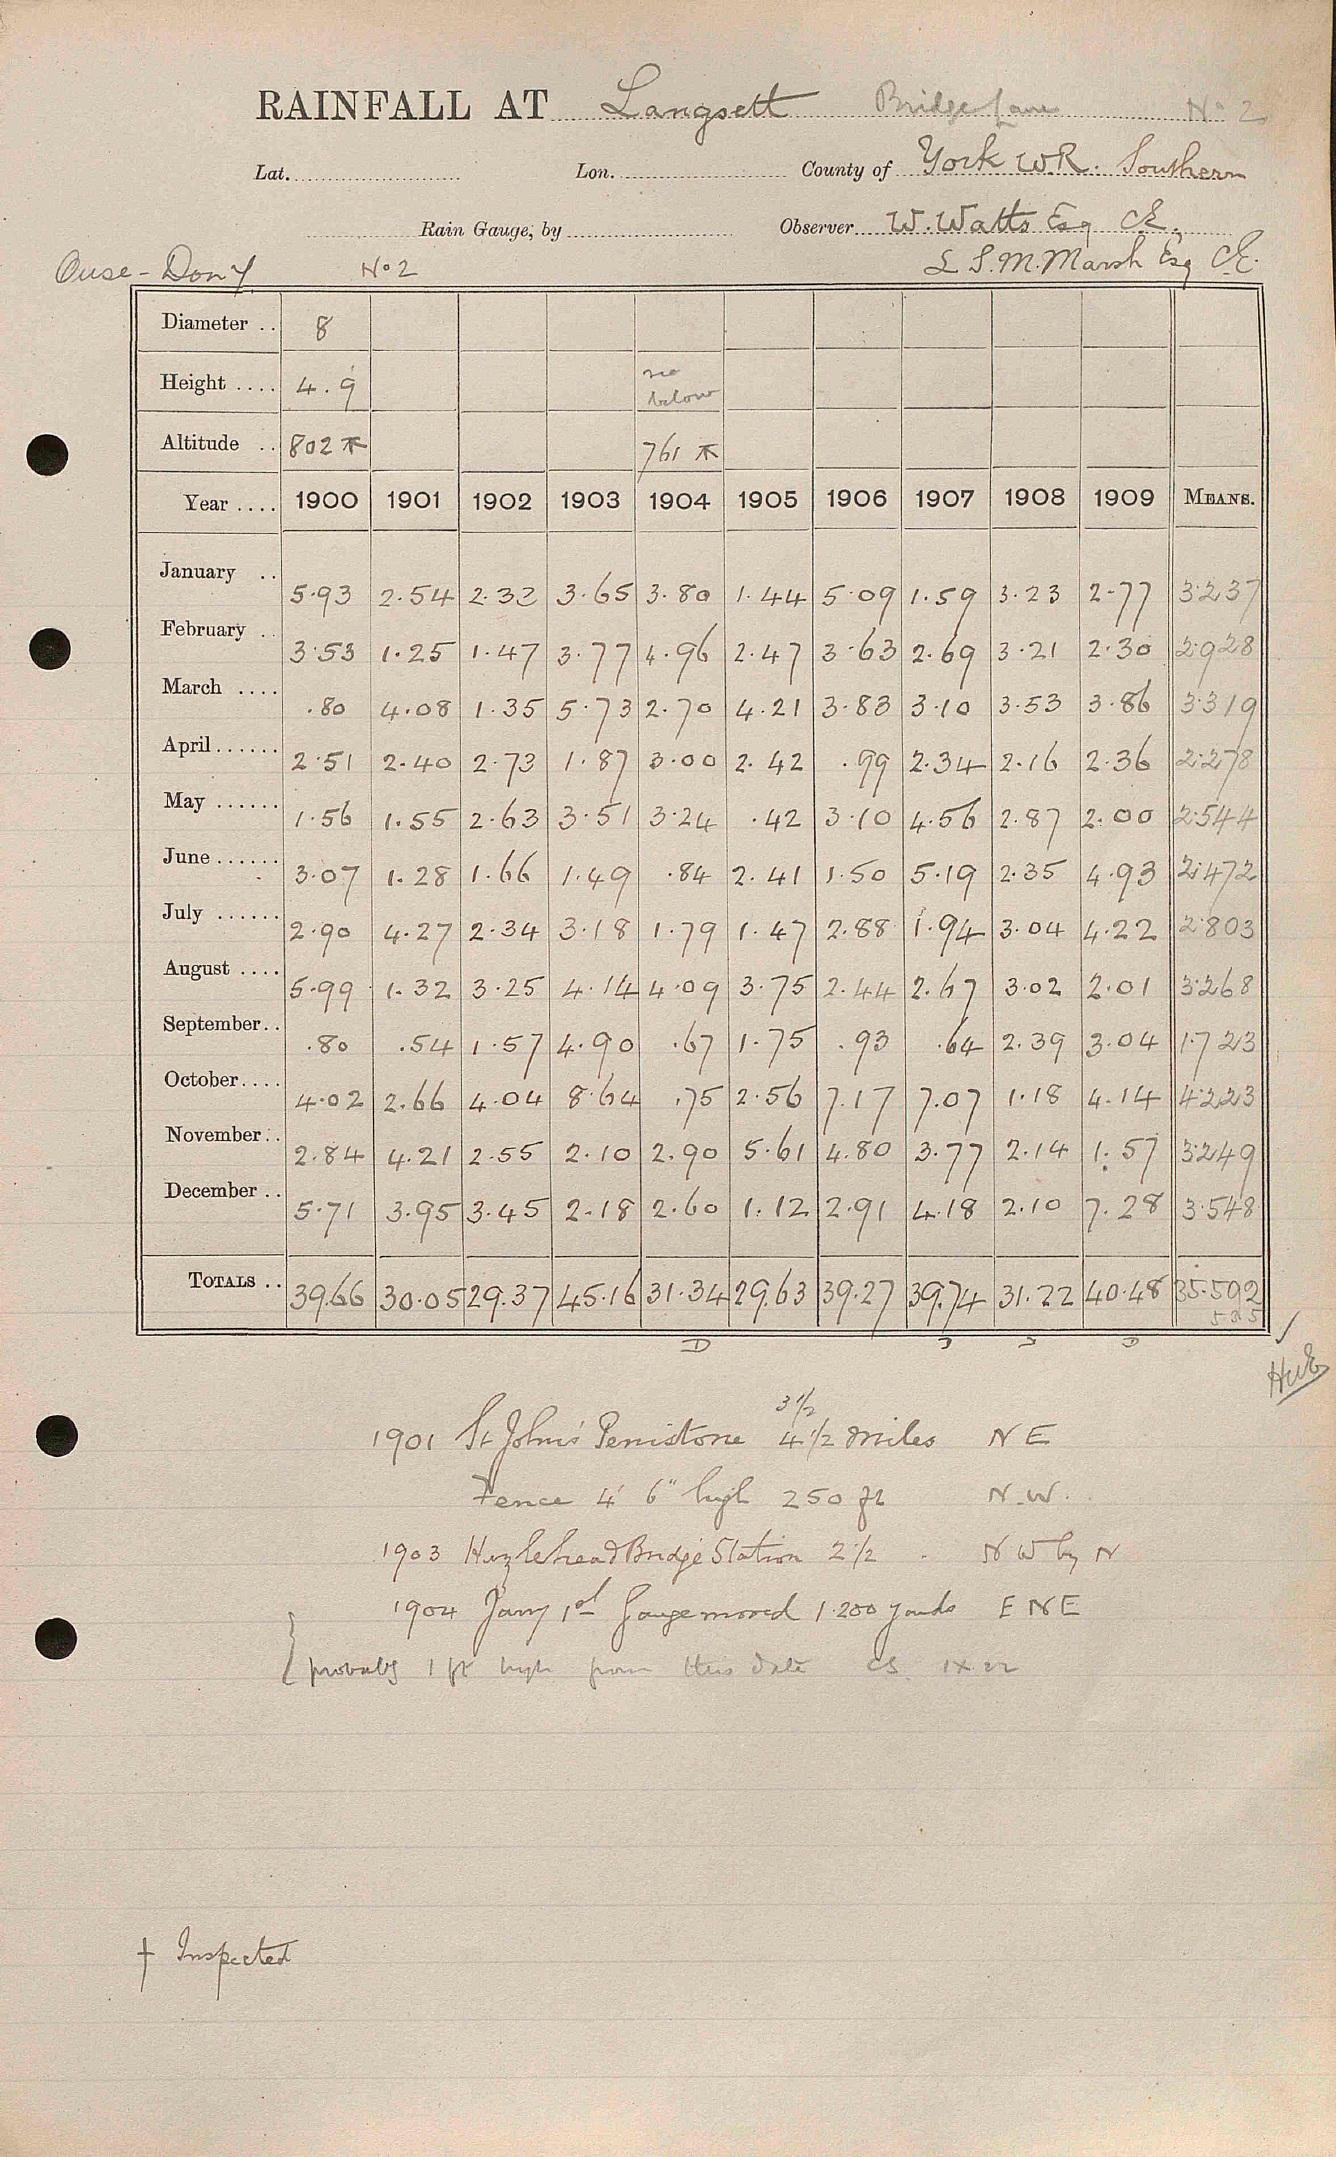 RAINFALL AT Langsett Bridge Lane No 2
Lat. Lon. County of York W.R. Southern
Rain Gauge, by Observer W. Watts Esq C.E.
Ouse - Don Y No 2 & S. M. Marsh Esq C.E.
Diameter .. 8
Height .... 4.9 no below
Altitude .. 802 ⊼ 761 ⊼
Year .... 1900 1901 1902 1903 1904 1905 1906 1907 1908 1909 MEANS.
January .. 5.93 2.54 2.32 3.65 3.80 1.44 5.09 1.59 3.23 2.77 3.237
February .. 3.53 1.25 1.47 3.77 4.96 2.47 3.63 2.69 3.21 2.30 2.928
March .... .80 4.08 1.35 5.73 2.70 4.21 3.83 3.10 3.53 3.86 3.319
April ...... 2.51 2.40 2.73 1.87 3.00 2.42 .99 2.34 2.16 2.36 2.278
May ...... 1.56 1.55 2.63 3.51 3.24 .42 3.10 4.56 2.87 2.00 2.544
June ...... 3.07 1.28 1.66 1.49 .84 2.41 1.50 5.19 2.35 4.93 2.472
July ...... 2.90 4.27 2.34 3.18 1.79 1.47 2.88 1.94 3.04 4.22 2.803
August .... 5.99 1.32 3.25 4.14 4.09 3.75 2.44 2.67 3.02 2.01 3.268
September .. .80 .54 1.57 4.90 .67 1.75 .93 .64 2.39 3.04 1.723
October .... 4.02 2.66 4.04 8.64 .75 2.56 7.17 7.07 1.18 4.14 4.223
November .. 2.84 4.21 2.55 2.10 2.90 5.61 4.80 3.77 2.14 1.57 3.249
December .. 5.71 3.95 3.45 2.18 2.60 1.12 2.91 4.18 2.10 7.28 3.548
TOTALS .. 39.66 30.05 29.37 45.16 31.34 29.63 39.27 39.74 31.22 40.48 35.592
D
3 1/2
1901 St John's Penistone 4 1/2 miles N E
Fence 4' 6" high 250 ft N.W.
1903 Hazlehead Bridge Station 2 1/2 N W by N
1904 Jany 1st Gauge moved 1.200 yards E N E
probably 1 ft high from this date CS. IX 22
† Inspected